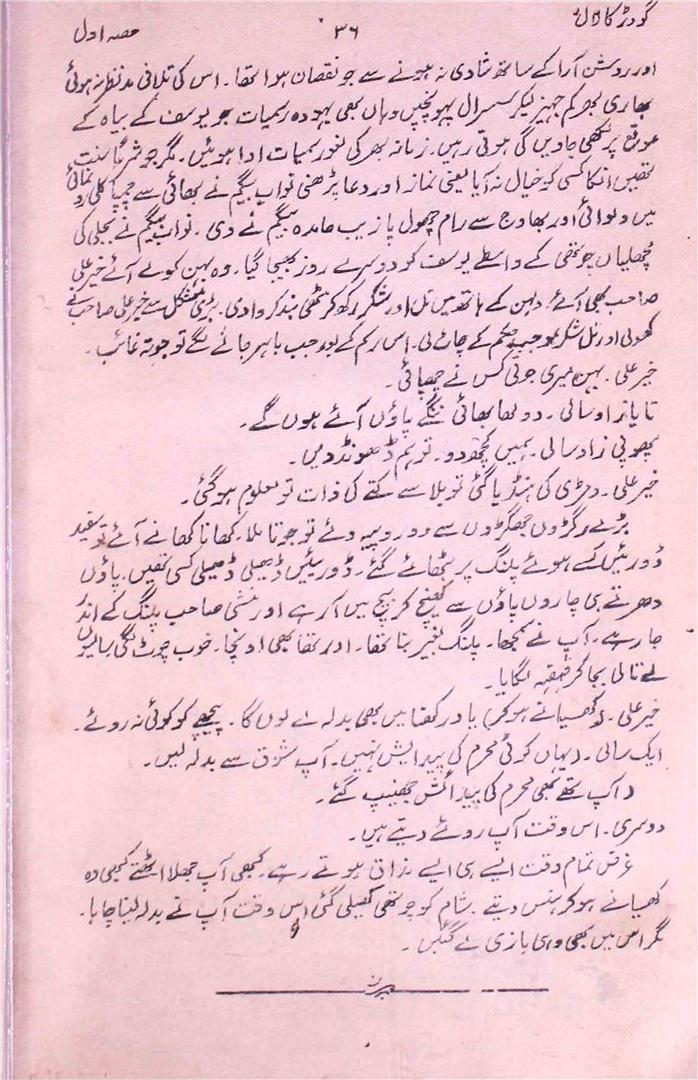 گودڑ کا لال ۳۶ حصہ اول
اور روشن آرا کے ساتھ شادی نہ ہونے سے جو نقصان ہوا تھا۔ اس کی تلافی مدنظر نہ ہوئی
بھاری بھرکم جہیز لیکر سسرال پہونچیں وہاں بھی بیہودہ رسمیات جو یوسف کے بیاہ کے
موقع پر لکھی جاویں گی ہوتی رہیں۔ زمانہ بھر کی لغو رسمیات ادا ہوئیں۔ مگر جو شرعاً سنت
تھیں انکا کسی کو خیال نہ آیا یعنی نماز اور دعا پڑھنی نواب بیگم نے بھائی سے چمپا کلی رونمائی
میں دلوائی اور بھاوج سے رام جھول پازیب عابدہ بیگم نے دی۔ نواب بیگم نے بجلی کی
مچھلیاں چوتھی کے واسطے یوسف کو دوسرے روز بھیجا گیا۔ وہ بہن کو لے آئے خیر علی
صاحب بھی آئے۔ دلہن کے ہاتھ میں تل اور شکر رکھ کر مٹھی بند کروا دی۔ بڑی مشکل سے خیر علی صاحب نے
کھولی اور تل شکر بموجب حکم کے چاٹ لی۔ اس رسم کے بعد جب باہر جانے لگے تو جوتہ غائب۔
خیر علی۔ بہن میری جوتی کس نے چھپائی۔
تایا زاد سالی۔ دولھا بھائی ننگے پاؤں آئے ہوں گے۔
پھوپی زاد سالی۔ ہمیں کچھ دو۔ تو ہم ڈھونڈ دیں۔
خیر علی۔ دمڑی کی ہنڈیا گئی تو بلا سے کتے کی ذات تو معلوم ہو گئی۔
بڑے رگڑوں جھگڑوں سے دو روپیہ دئے تو جوتا ملا۔ کھانا کھانے آئے تو سفید
ڈوریئیں کسے ہوئے پلنگ پر بٹھائے گئے۔ ڈوریئیں ڈھیلی ڈھیلی کسی تھیں۔ پاؤں
دھرتے ہی چاروں پاؤں سے کھنچ کر بیچ میں آ رہے اور منشی صاحب پلنگ کے اندر
جا رہے۔ آپ نے سمجھا۔ پلنگ بغیر بنا تھا۔ اور تھا بھی اونچا۔ خوب چوٹ لگی سالیوں
نے تالی بجا کر قہقہہ لگایا۔
خیر علی۔ (کھسیانے ہو کر) یاد رکھنا میں بھی بدلہ لے لوں گا۔ پیچھے کو کوئی نہ روئے۔
ایک سالی۔ (یہاں کوئی محرم کی پیدایش نہیں۔ آپ شوق سے بدلہ لیں۔
(آپ تھے بھی محرم کی پیدائش جھینپ گئے۔
دوسری۔ اس وقت آپ روئے دیتے ہیں۔
غرض تمام وقت ایسے ہی ایسے مذاق ہوتے رہے۔ کبھی آپ جھلا اٹھتے کبھی وہ
کھسیانے ہو کر ہنس دیتے۔ شام کو چوتھی کھیلی گئی اس وقت آپ نے بدلہ لینا چاہا۔
مگر اس میں بھی وہی بازی لے گئیں۔